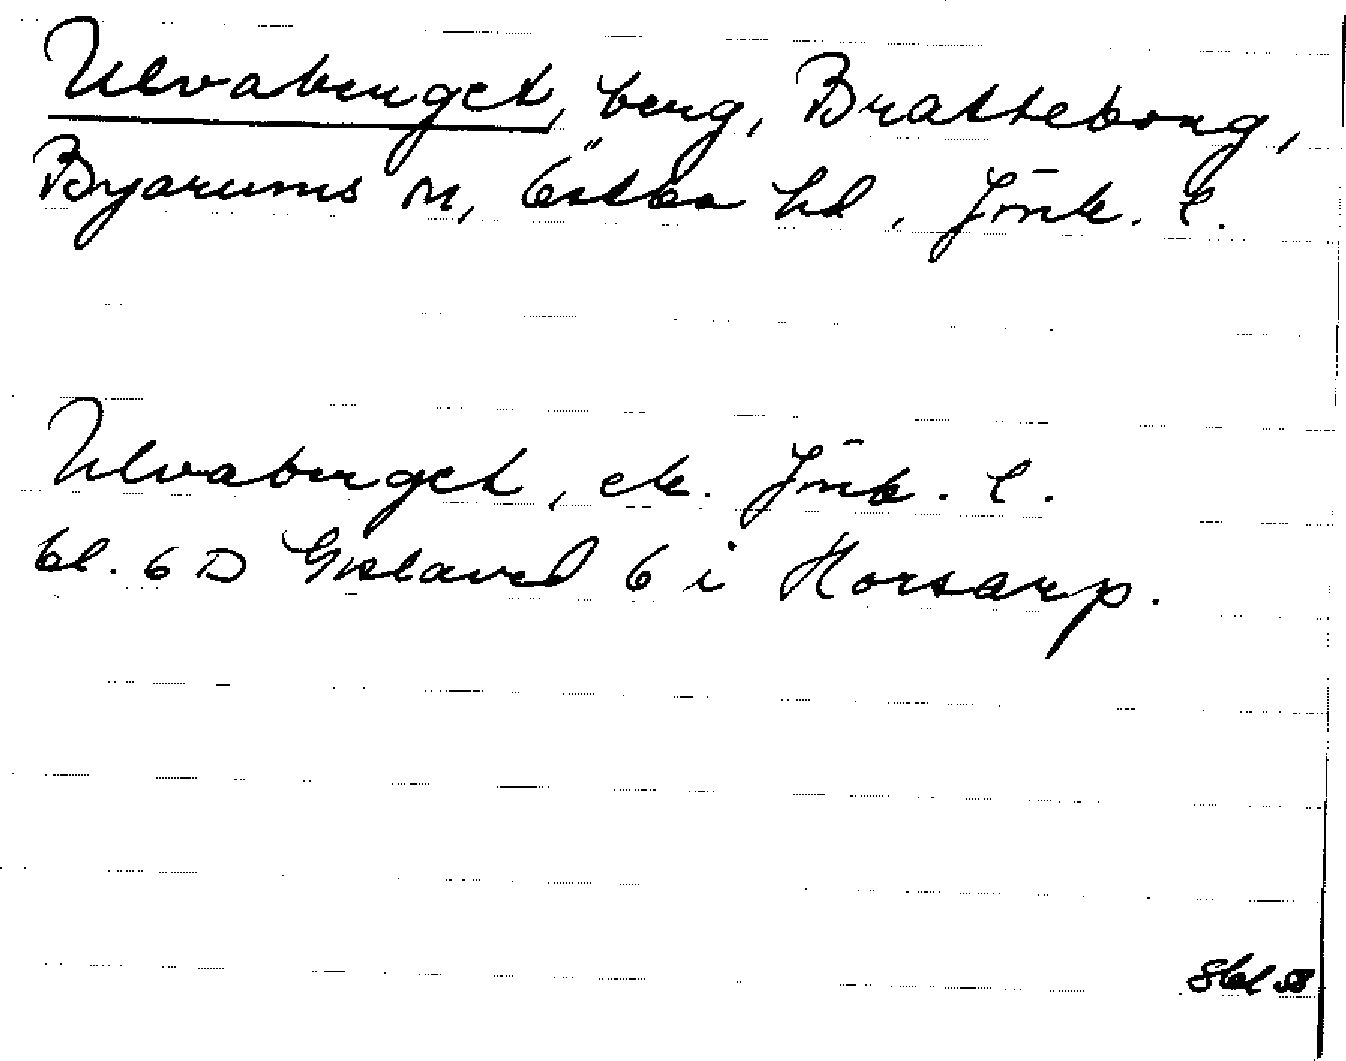 Ulvaberget, berg, Bratteborg,
Byarums sn, Östbo hd, Jönk. l.
Ulvaberget, ek. Jönk. l.
bl. 6 D Gislaved 6 i Horsarp.